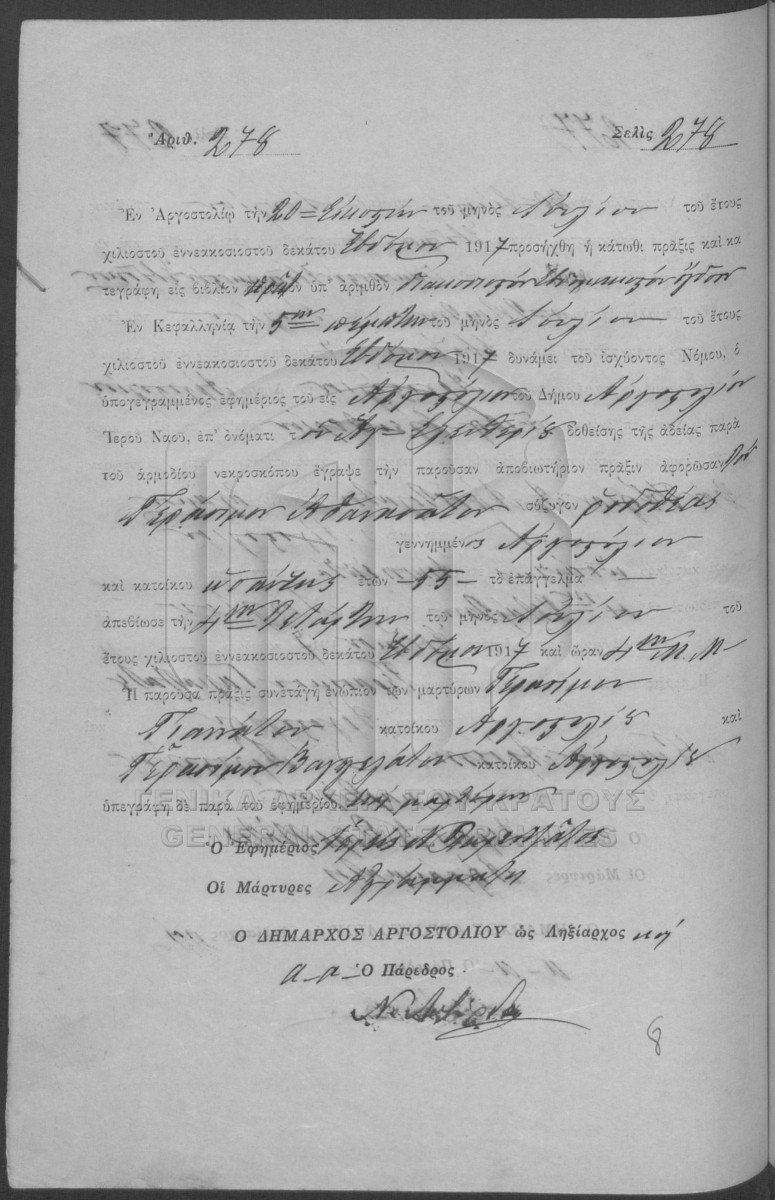 Ἀριθ. 278
Σελὶς 278
Ἐν Ἀργοστολίῳ τὴν 20 = Εἰκοστὴν τοῦ μηνὸς Ἰουλίου τοῦ ἔτους
χιλιοστοῦ ἐννεακοσιοστοῦ δεκάτου Ἑβδόμου 1917 προσήχθη ἡ κάτωθι πρᾶξις καὶ κα
τεγράφη εἰς βιβλίον ὑπ' ἀριθμὸν διακοσιοστὸν ἑβδομηκοστὸν ὄγδοον
Ἐν Κεφαλληνίᾳ τὴν 5ην πέμπτην τοῦ μηνὸς Ἰουλίου τοῦ ἔτους
χιλιοστοῦ ἐννεακοσιοστοῦ δεκάτου Ἑβδόμου 1917 δυνάμει τοῦ ἰσχύοντος Νόμου, ὁ
ὑπογεγραμμένος ἐφημέριος τοῦ εἰς Ἀργοστόλιον τοῦ Δήμου Ἀργοστολίου
Ἱεροῦ Ναοῦ, ἐπ' ὀνόματι τ δοθείσης τῆς ἀδείας παρὰ
τοῦ ἁρμοδίου νεκροσκόπου ἔγραψε τὴν παροῦσαν ἀποβιωτήριον πρᾶξιν ἀφορῶσαν τὸν
Γεράσιμον σύζυγον Δοροθέας
γεννημμένος Ἀργοστόλιον
καὶ κατοίκου ὡσαύτως ἐτῶν - 55 - τὸ ἐπάγγελμα —
ἀπεβίωσε τὴν 4ην Τετάρτην τοῦ μηνὸς Ἰουλίου τοῦ
ἔτους χιλιοστοῦ ἐννεακοσιοστοῦ δεκάτου Ἑβδόμου 1917 καὶ ὥραν 4ην Μ.Μ
Ἡ παροῦσα πρᾶξις συνετάγη ἐνώπιον τῶν μαρτύρων Γερασίμου
κατοίκου Ἀργοστολίου καὶ
Γερασίμου Βαγγελάτου κατοίκου Ἀργοστολίου
ὑπεγράφη δὲ παρὰ τοῦ ἐφημερίου. καὶ μαρτύρων
ΓΕΝΙΚΑ ΑΡΧΕΙΑ ΤΟΥ ΚΡΑΤΟΥΣ
GENERAL STATE ARCHIVES
Ὁ Ἐφημέριος
Οἱ Μάρτυρες Ἀγράμματοι
Ο ΔΗΜΑΡΧΟΣ ΑΡΓΟΣΤΟΛΙΟΥ ὡς Ληξίαρχος
α-α- Ὁ Πάρεδρος
8